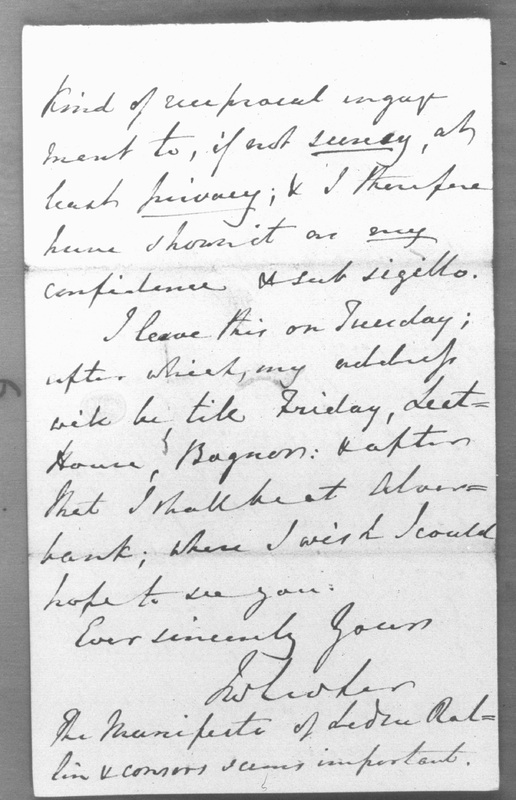 Kind of reciprocal engage
ment to, if not secrecy, at
least privacy; & I therefore
have shown it on my
confidence & sub sigillo.
I leave this on Tuesday;
after which, my address
will be, till Friday,
House, Bognor: & after
that I shall be at Alver=
bank; where I wish I could
hope to see you.
Ever sincerely Yours
JW Croker
The Manifesto of Ledru Rol=
lin & consors seems important.